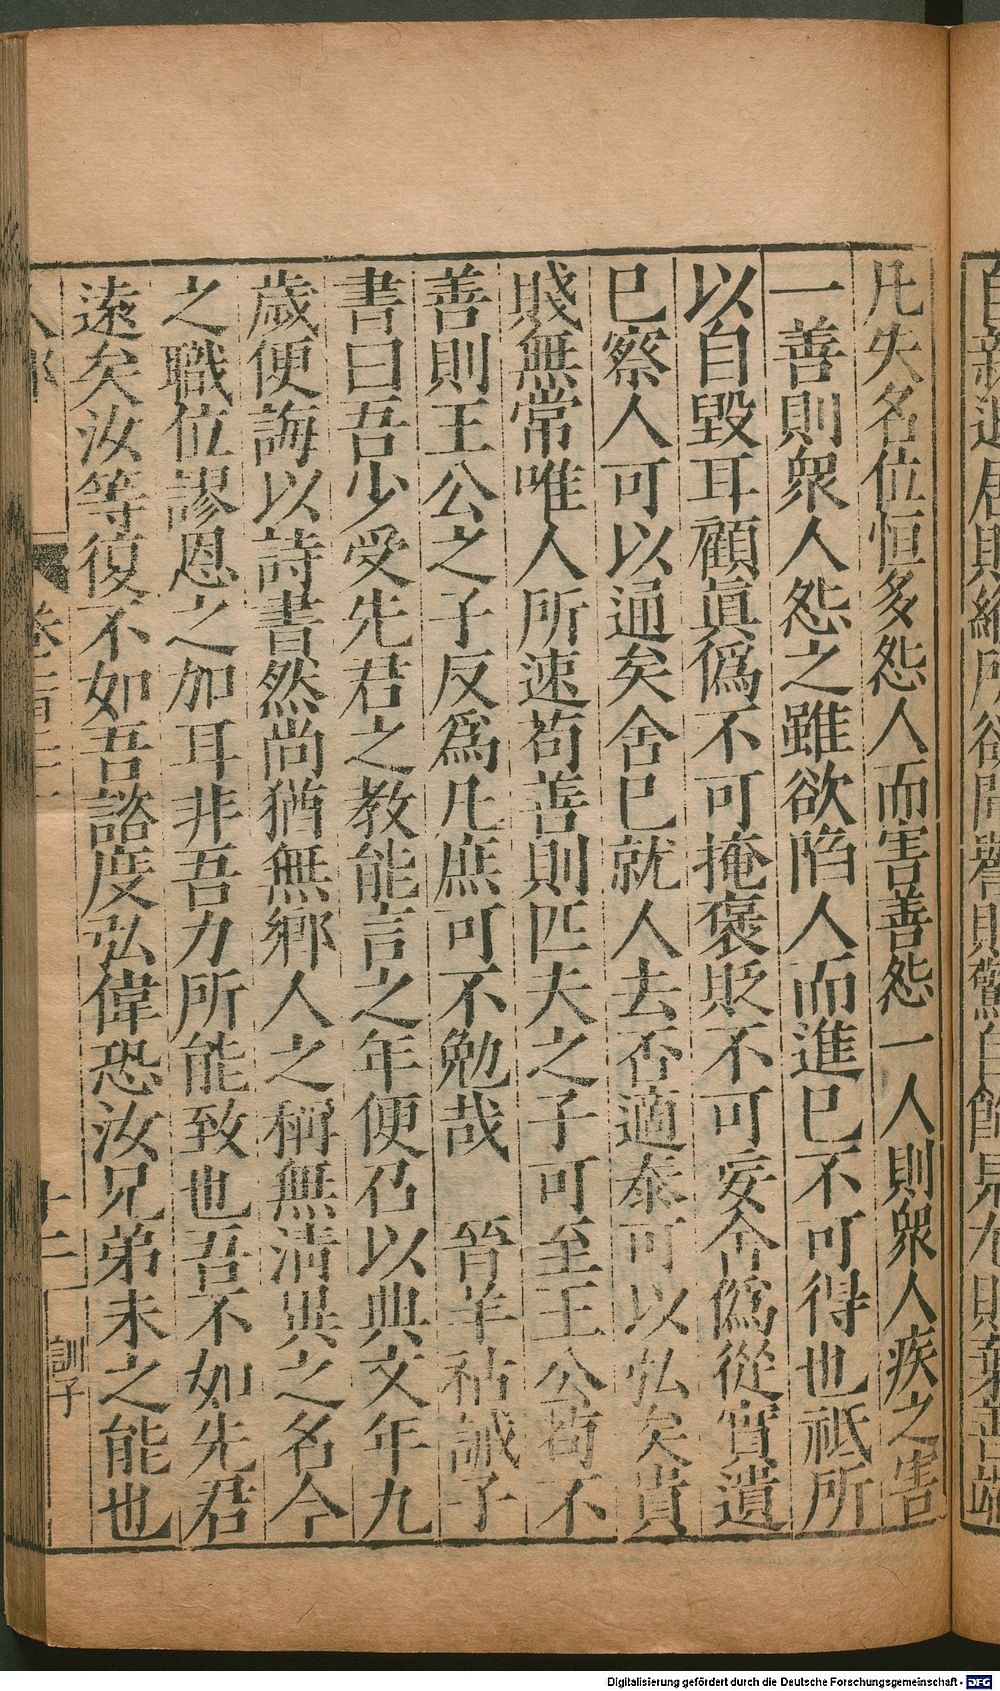 凡失名位恒多怨人而害善怨一人則衆人疾之害
一善則衆人怨之雖欲陷人而進已不可得也祗所
以自毀耳顧眞僞不可掩褒貶不可妄舍僞從實遺
已察人可以通矣舍已就人去否適泰可以弘矣貴
賤無常唯人所速苟善則匹夫之子可至王公苟不
善則王公之子反爲凡庶可不勉哉　晉羊祜誡子
書曰吾少受先君之教能言之年便召以典文年九
歲便誨以詩書然尚猶無鄉人之稱無清異之名今
之職位謬恩之加耳非吾力所能致也吾不如先君
遠矣汝等復不如吾諮度弘偉恐汝兄弟未之能也
十二
訓子
Digitalisierung gefördert durch die Deutsche Forschungsgemeinschaft - DFG